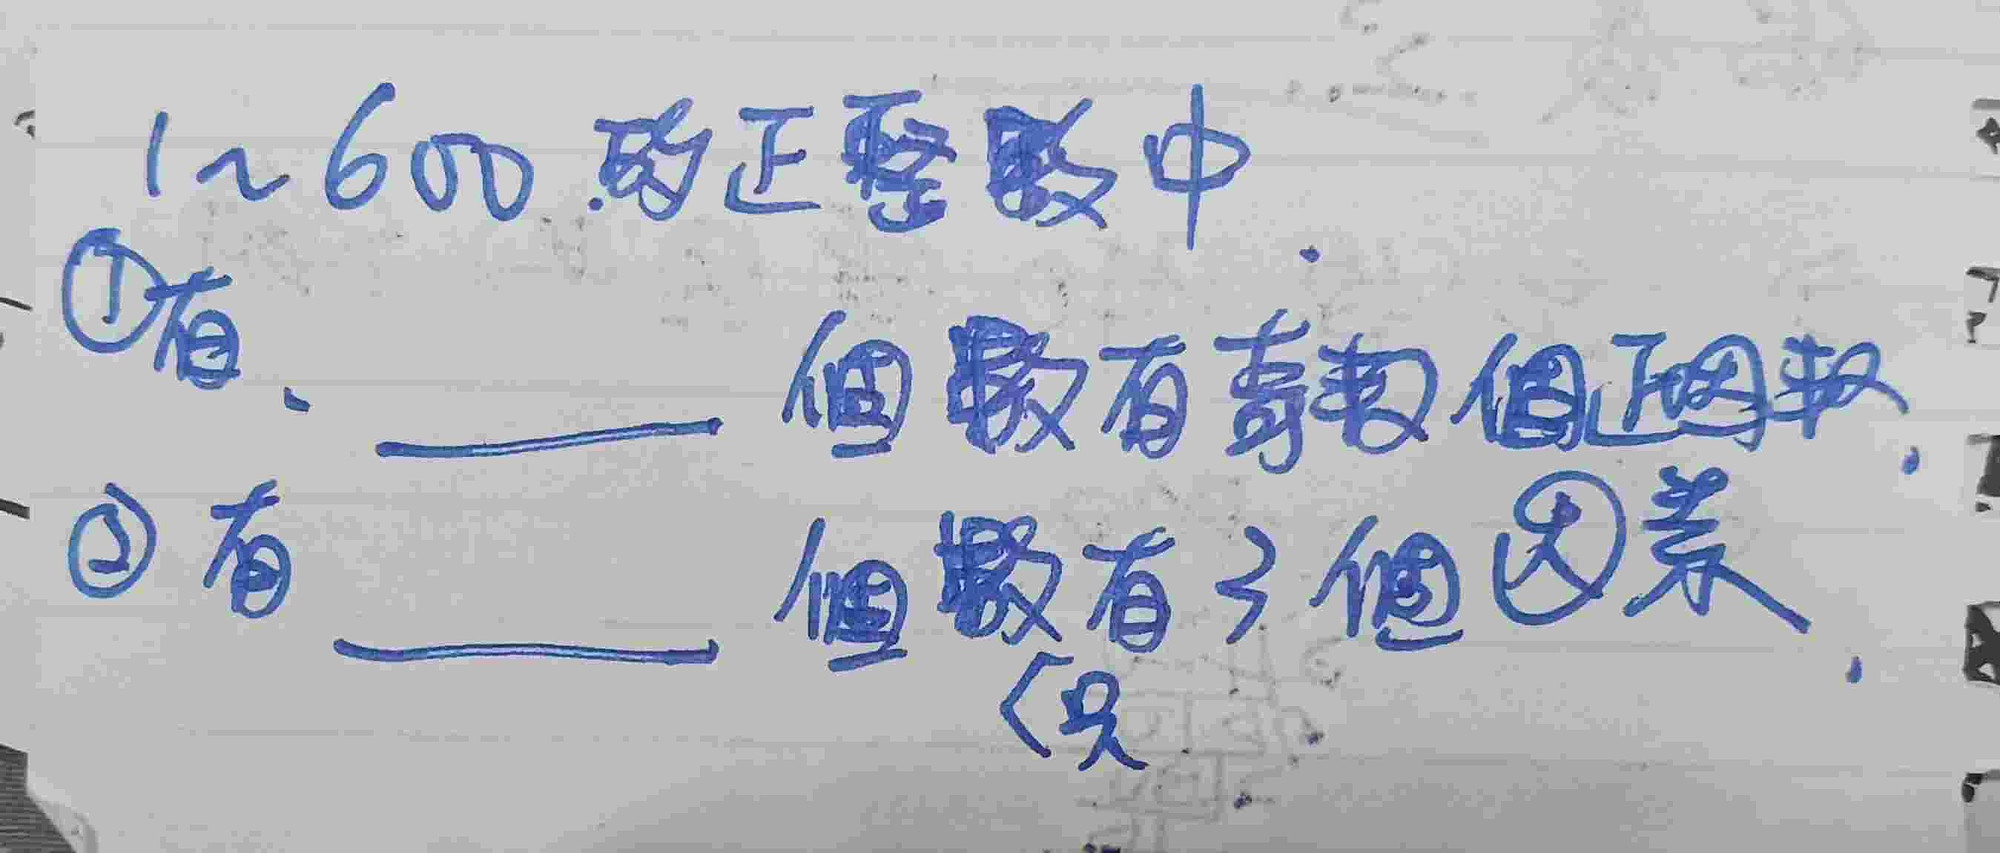 1~600的正整數中
①有、______個數有奇數個正因數.
②有______個數有3個因素.
〈只